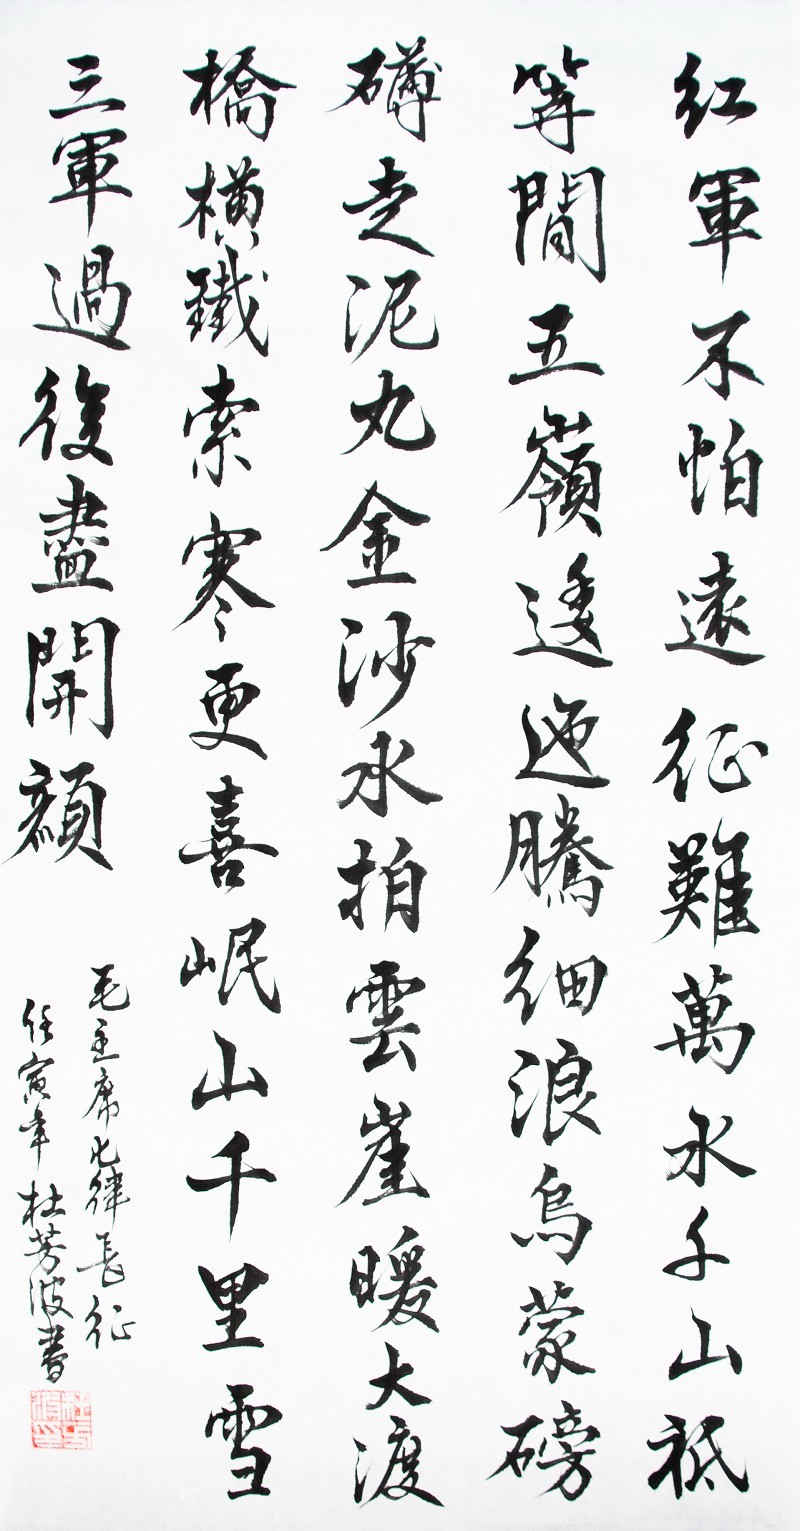 紅軍不怕遠征難萬水千山祗
等間五嶺逶迤騰細浪烏蒙磅
礴走泥丸金沙水拍雲崖暖大渡
橋橫鐵索寒更喜岷山千里雪
三軍過後盡開顏
毛主席七律長征
任寅年杜芳波書